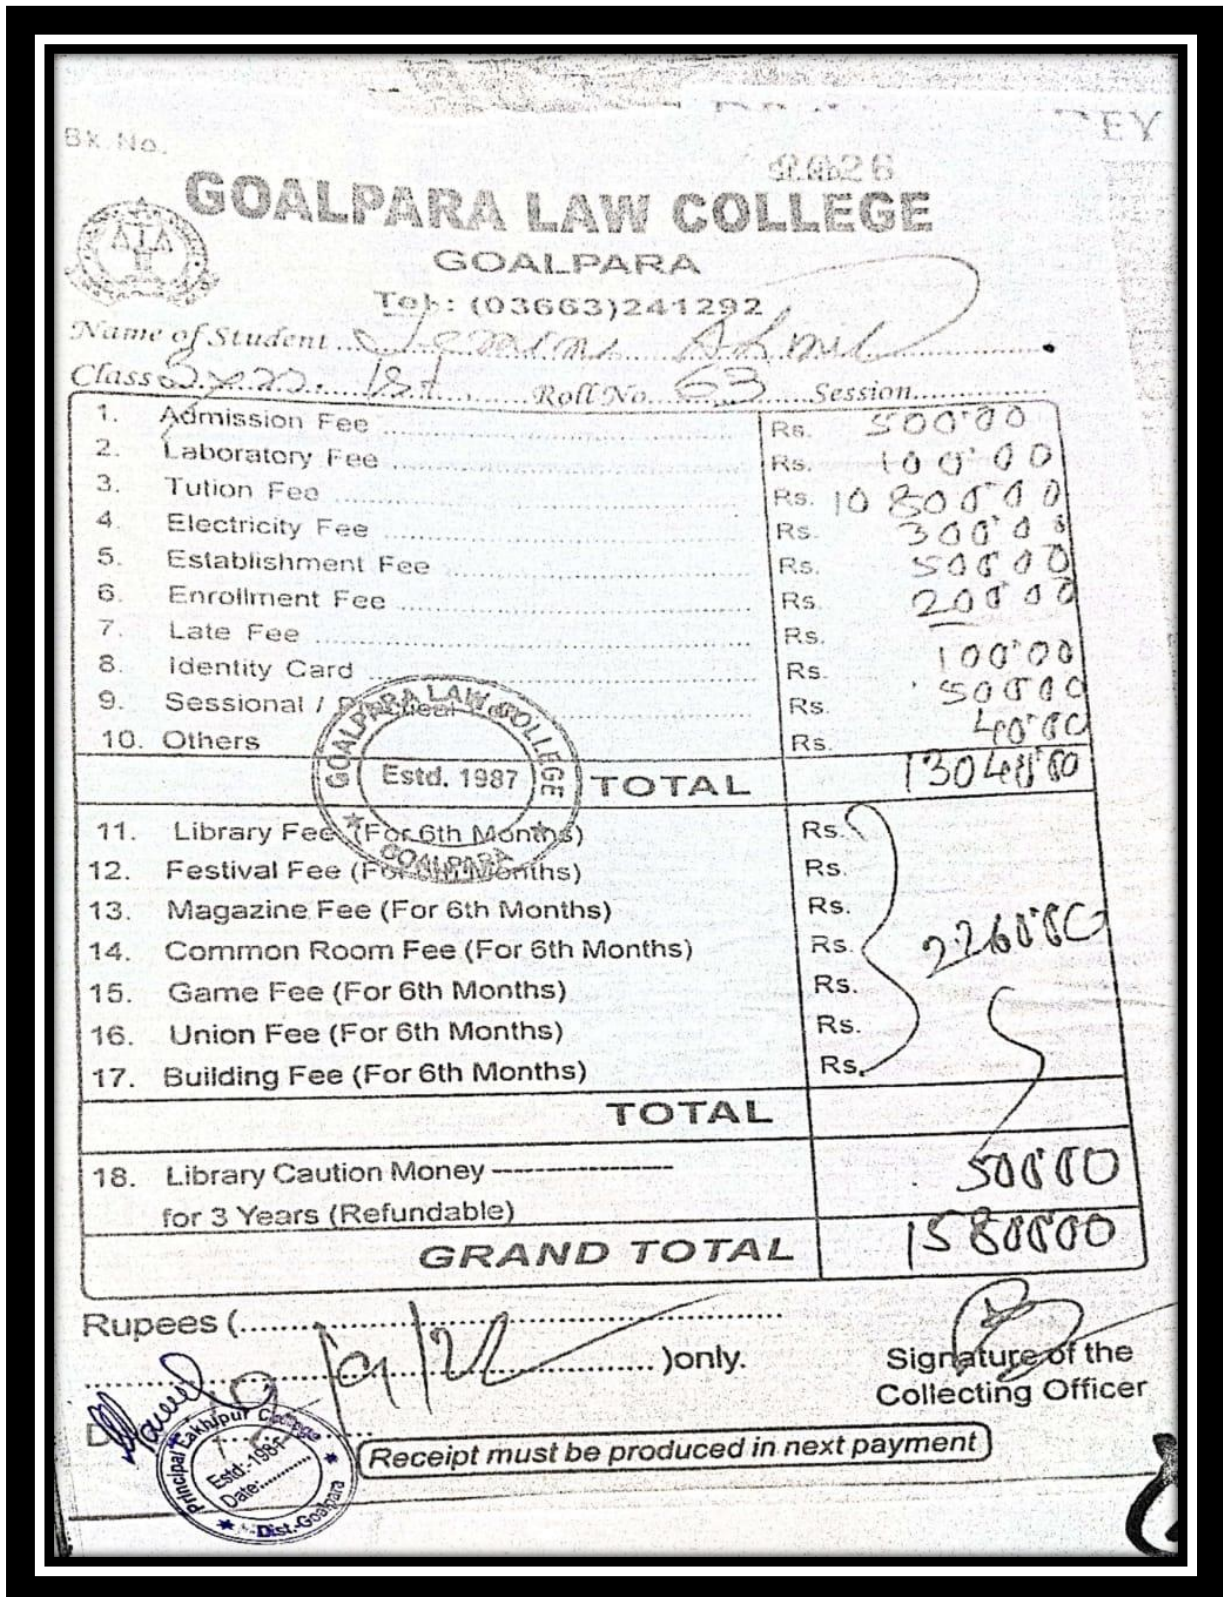 Bk. No.
GOALPARA LAW COLLEGE
GOALPARA
Tel: (03663)241292
Name of Student
Class 1st Roll No. 63 Session
1. Admission Fee Rs. 500.00
2. Laboratory Fee Rs. 100.00
3. Tution Fee Rs. 10800.00
4. Electricity Fee Rs. 300.00
5. Establishment Fee Rs. 500.00
6. Enrollment Fee Rs. 200.00
7. Late Fee Rs.
8. Identity Card Rs. 100.00
9. Sessional / Rs. 500.00
10. Others Rs. 40.00
TOTAL 13040.00
11. Library Fee (For 6th Months) Rs.
12. Festival Fee (For 6th Months) Rs.
13. Magazine Fee (For 6th Months) Rs.
14. Common Room Fee (For 6th Months) Rs. 2260.00
15. Game Fee (For 6th Months) Rs.
16. Union Fee (For 6th Months) Rs.
17. Building Fee (For 6th Months) Rs.
TOTAL
18. Library Caution Money ---------------- 500.00
for 3 Years (Refundable)
GRAND TOTAL 15800.00
Rupees (
)only.
Signature of the
Collecting Officer
Receipt must be produced in next payment
GOALPARA LAW COLLEGE
Estd. 1987
GOALPARA
Principal Lakhipur College
Estd.-1981
Date:
Dist.-Goalpara